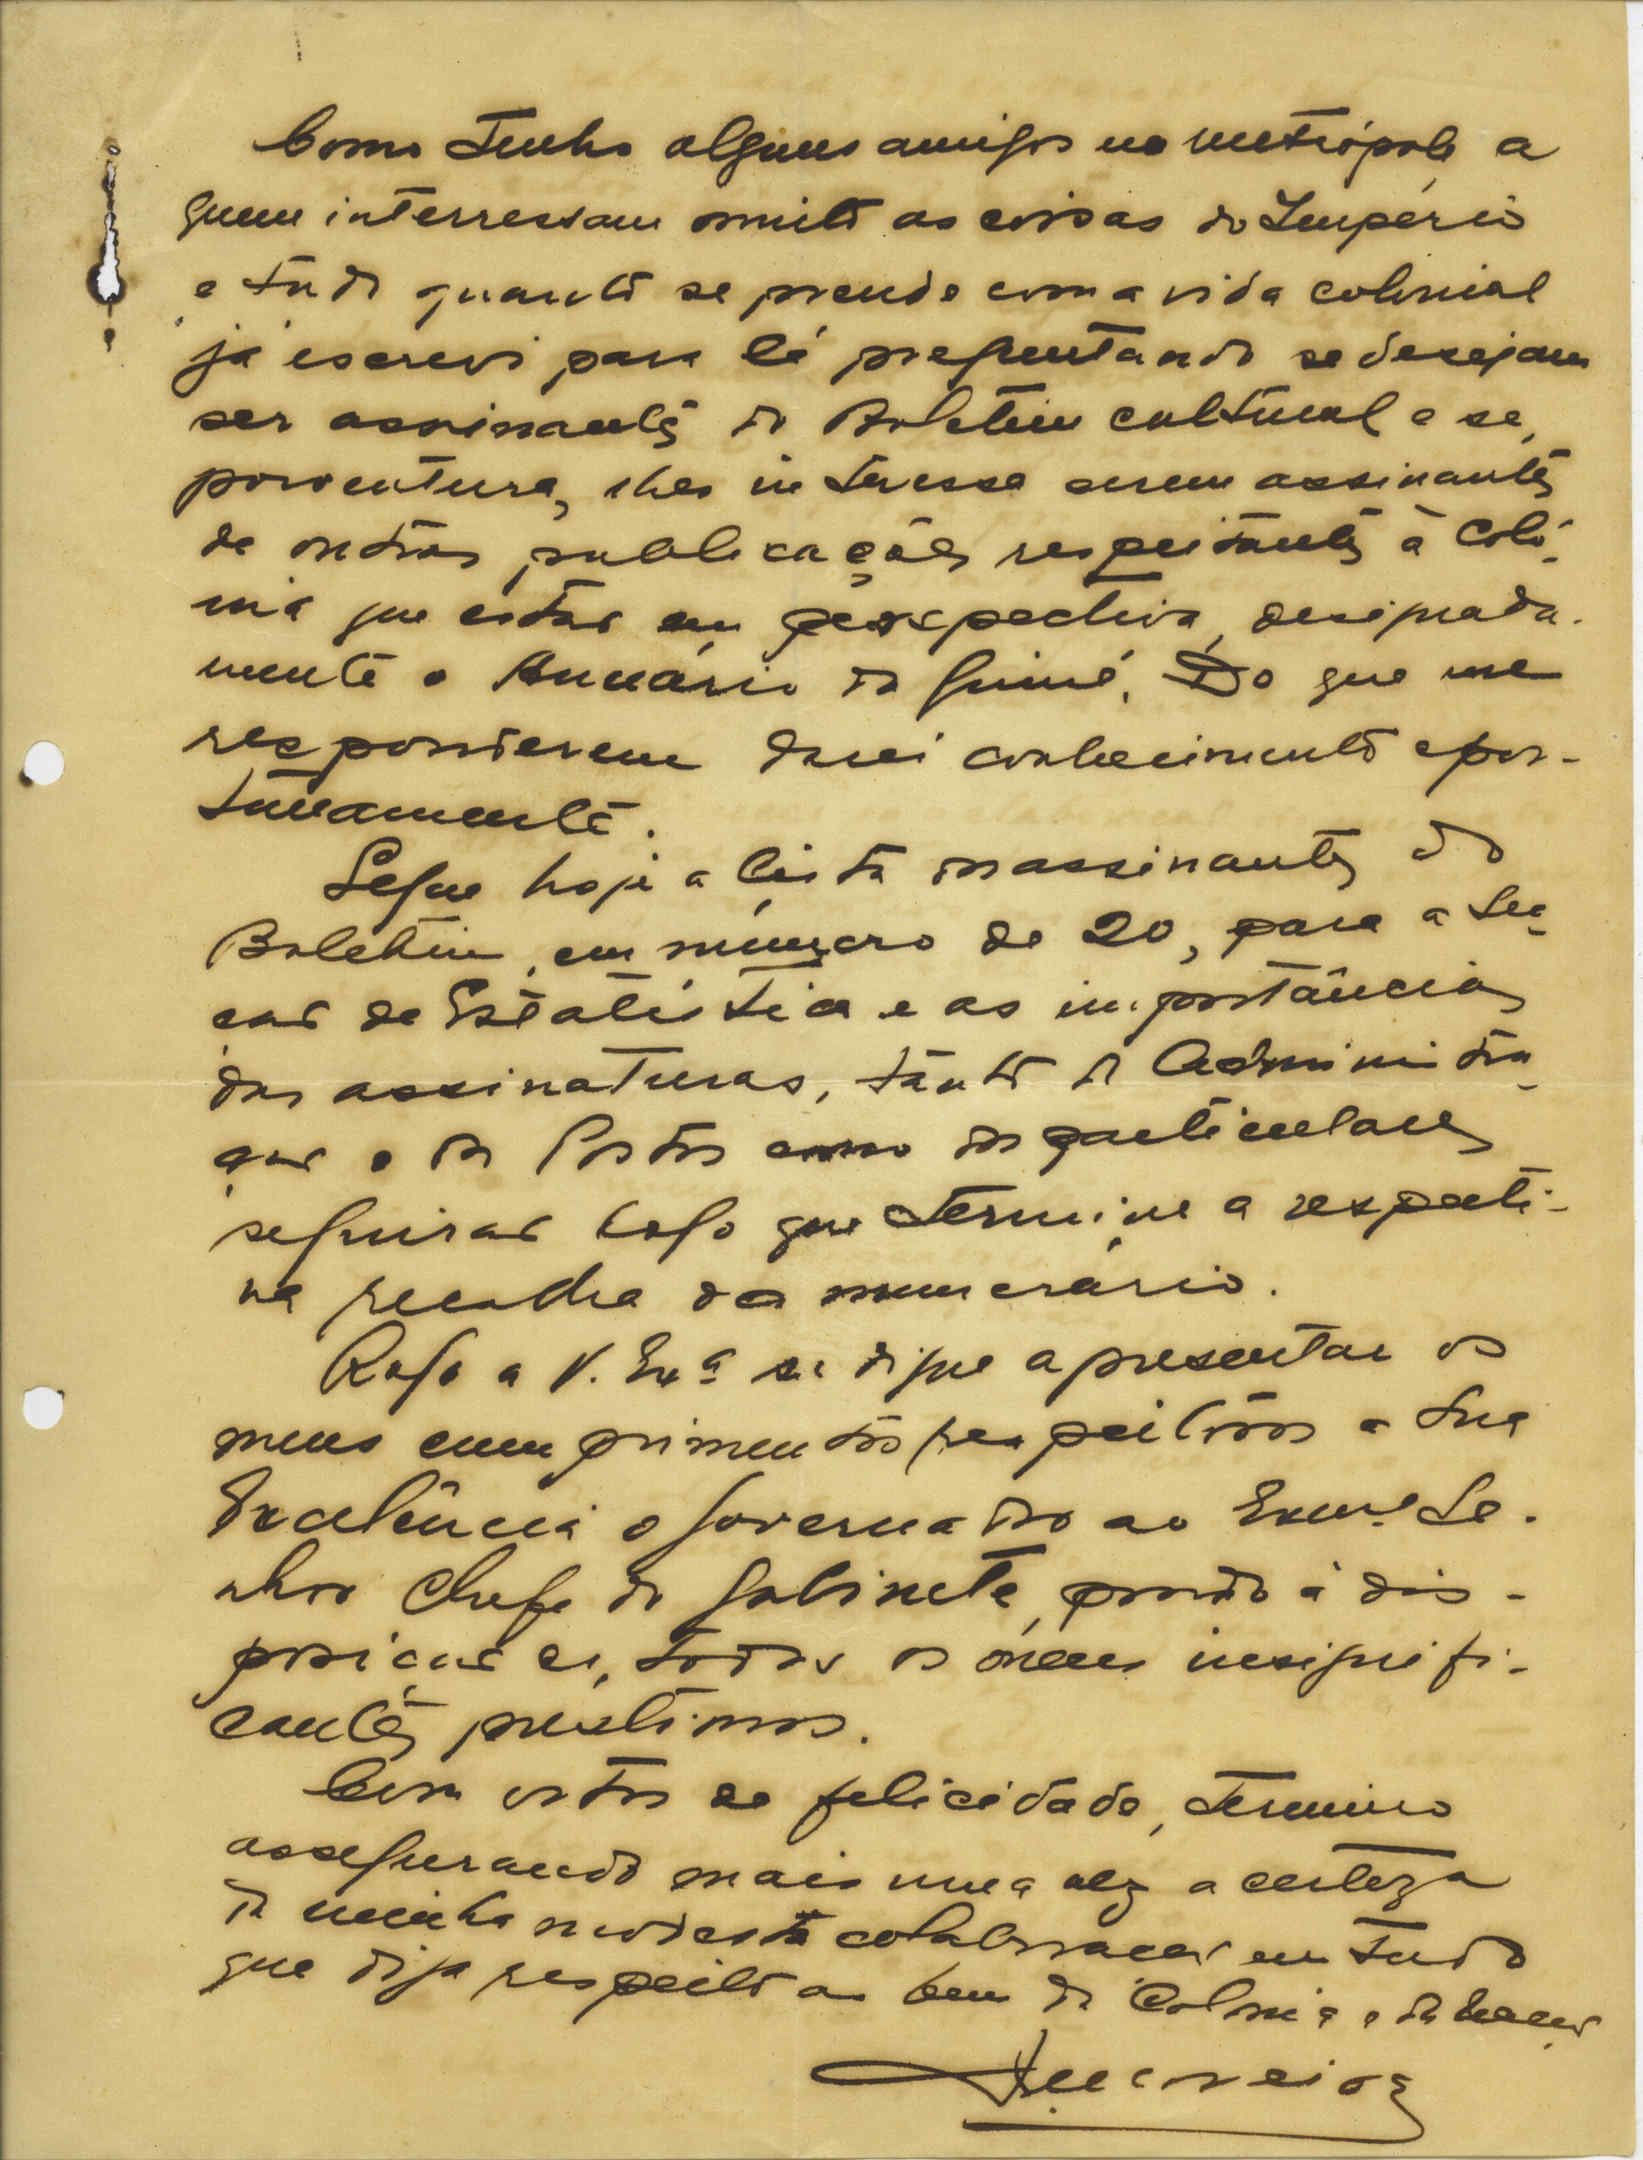 Como tenho alguns amigos na metrópole a
quem interressam muito as coisas do Império
e tudo quanto se prende com a vida colonial
já escrevi para lá preguntando se desejam
ser assinantes do Boletim cultural e se,
porventura, lhes interessa serem assinantes
de outras publicações respeitantes à Coló-
nia que estão em perspectiva, designada-
mente o Anuário da Guiné. Do que me
responderem darei conhecimento opor-
tunamente.
Segue hoje a lista dos assinantes do
Boletim, em número de 20, para a Sec-
ção de Estatística e as importâncias
das assinaturas, tanto da Administra-
ção e dos Postos como dos particulares
seguirão logo que termine a respecti-
va recolha do numerário.
Rogo a V. Exª se digne apresentar os
meus cumprimentos respeitosos a Sua
Excelência o Governador e ao Exmº Se-
nhor Chefe do Gabinete, pondo à dis-
posição de todos os meus insignifi-
cantes préstimos.
Com votos de felicidade, termino
assegurando mais uma vez a certeza
da minha modesta colaboração em tudo
que diga respeito ao bem da Colónia e da Nação